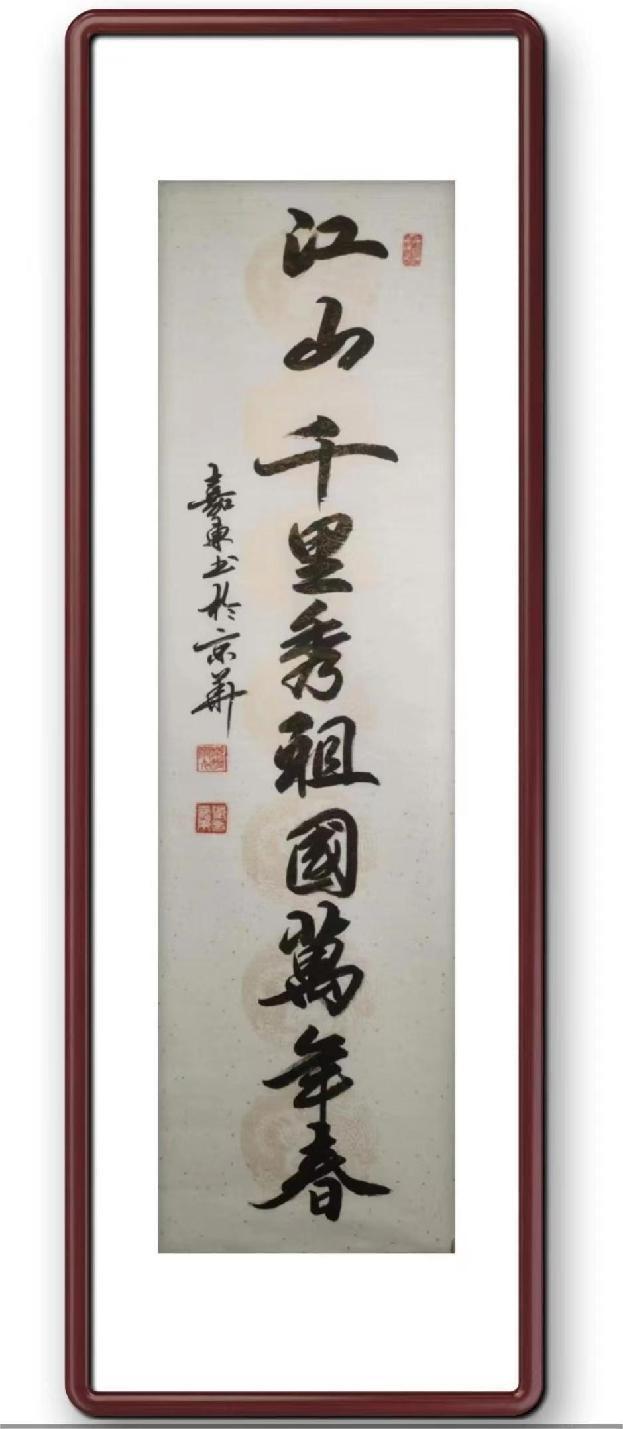 江山千里秀祖國萬年春
嘉東书於京華